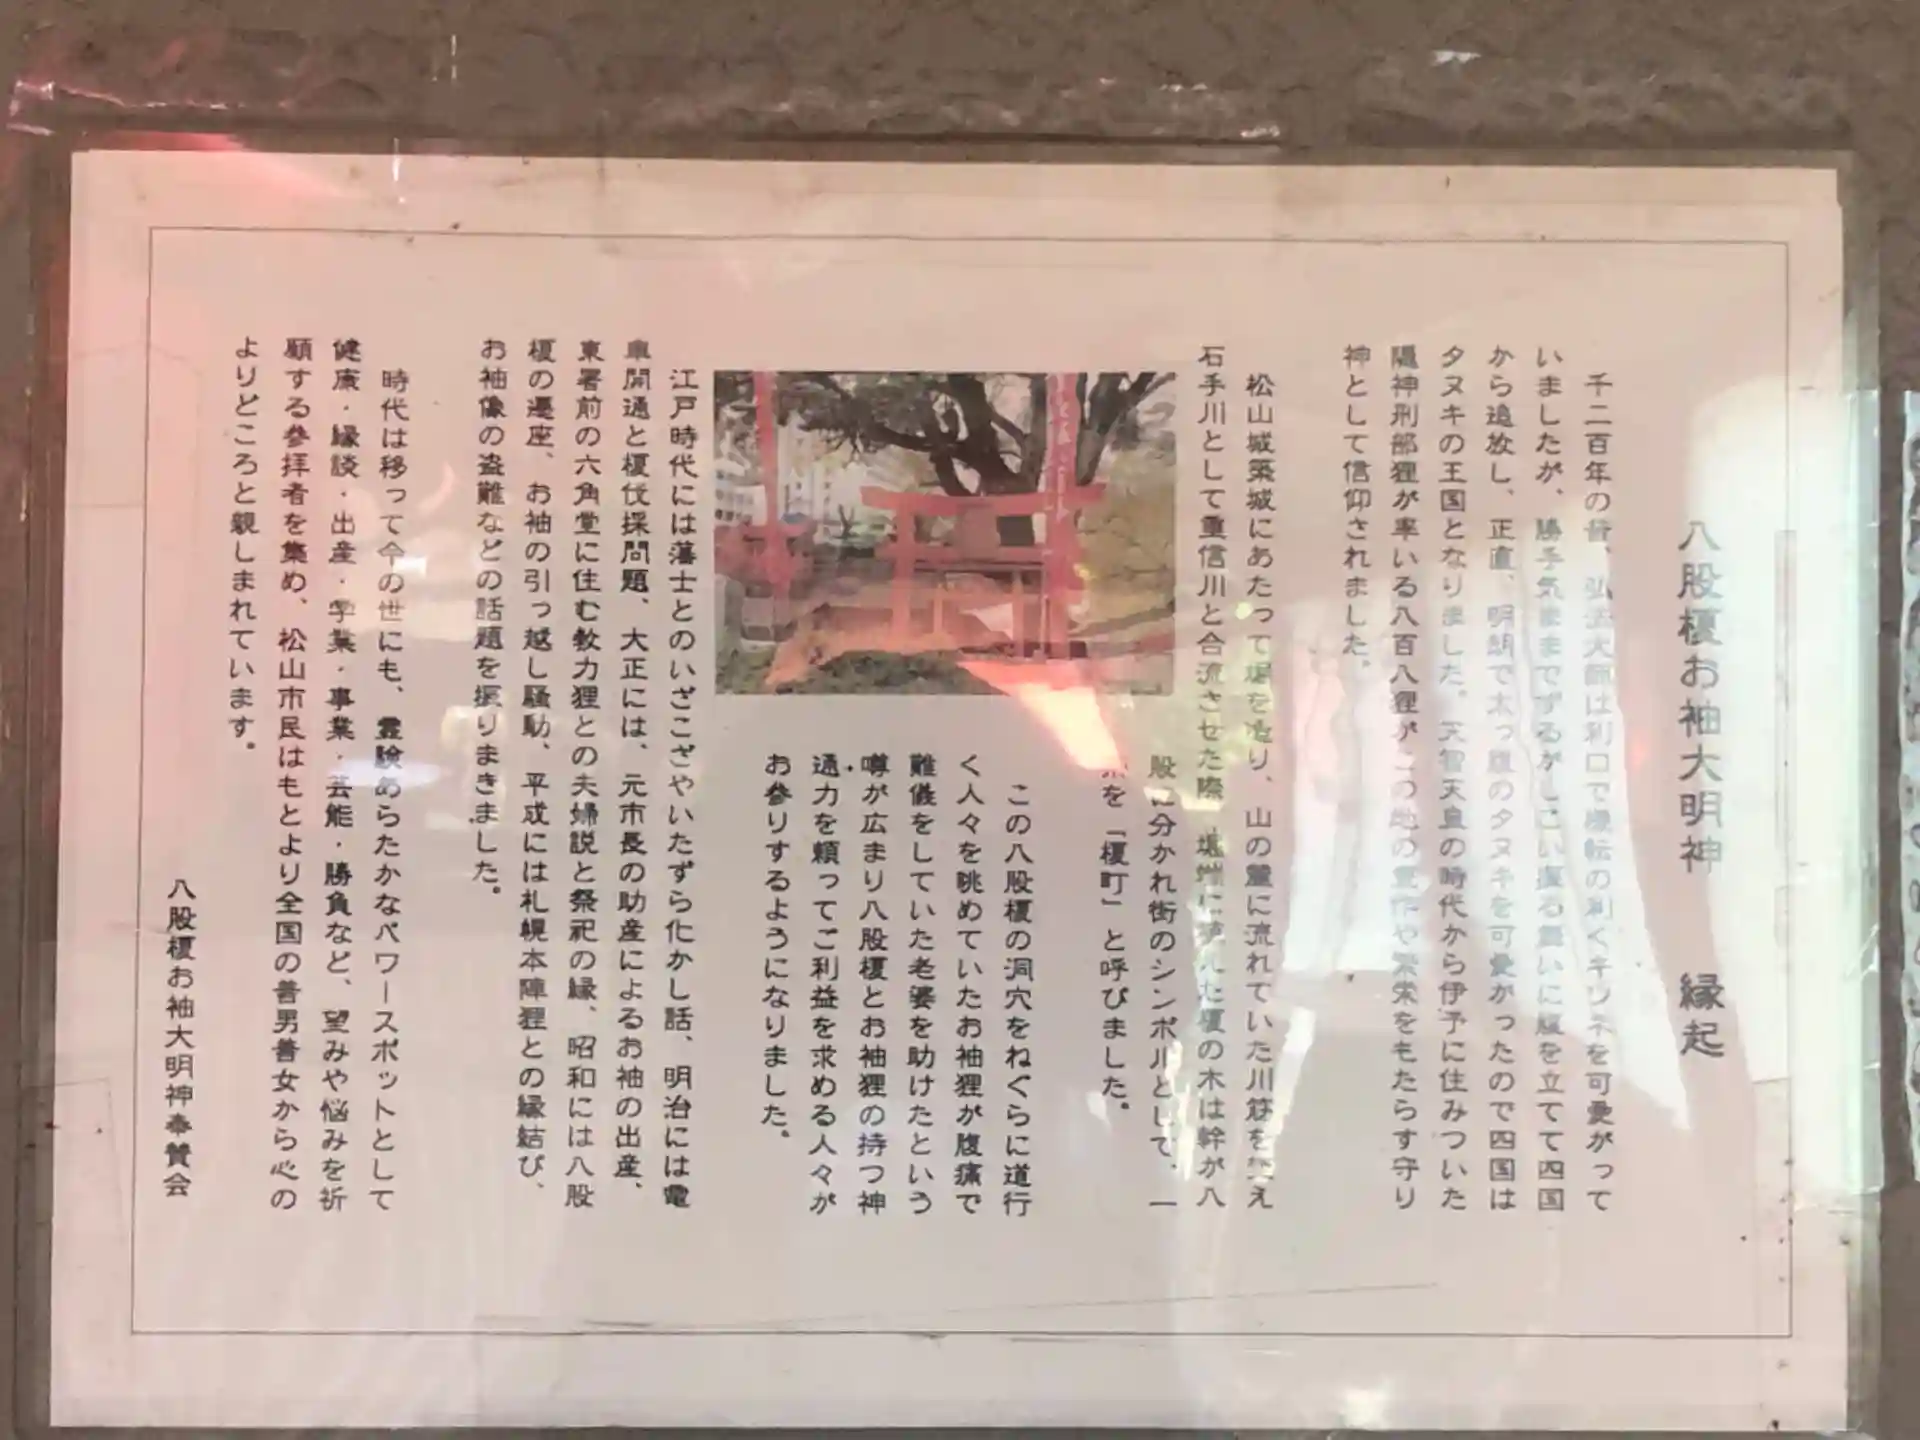 八股榎お袖大明神　縁起
千二百年の昔、弘法大師は利口で機転の利くキツネを可愛がって
いましたが、勝手気ままでずるがしこい振る舞いに腹を立てて四国
から追放し、正直、明朗で太っ腹のタヌキを可愛がったので四国は
タヌキの王国となりました。天智天皇の時代から伊予に住みついた
隠神刑部狸が率いる八百八狸がこの地の豊作や繁栄をもたらす守り
神として信仰されました。
松山城築城にあたって堀を造り、山の麓に流れていた川筋を変え
石手川として重信川と合流させた際、堀端に植えた榎の木は幹が八
股に分かれ街のシンボルとして、一
を「榎町」と呼びました。
この八股榎の洞穴をねぐらに道行
く人々を眺めていたお袖狸が腹痛で
難儀をしていた老婆を助けたという
噂が広まり八股榎とお袖狸の持つ神
通力を頼ってご利益を求める人々が
お参りするようになりました。
江戸時代には藩士とのいざこざやいたずら化かし話、明治には電
車開通と榎伐採問題、大正には、元市長の助産によるお袖の出産、
東署前の六角堂に住む教力狸との夫婦説と祭祀の縁、昭和には八股
榎の遷座、お袖の引っ越し騒動、平成には札幌本陣狸との縁結び、
お袖像の盗難などの話題を振りまきました。
時代は移って今の世にも、霊験あらたかなパワースポットとして
健康・縁談・出産・学業・事業・芸能・勝負など、望みや悩みを祈
願する参拝者を集め、松山市民はもとより全国の善男善女から心の
よりどころと親しまれています。
八股榎お袖大明神奉賛会